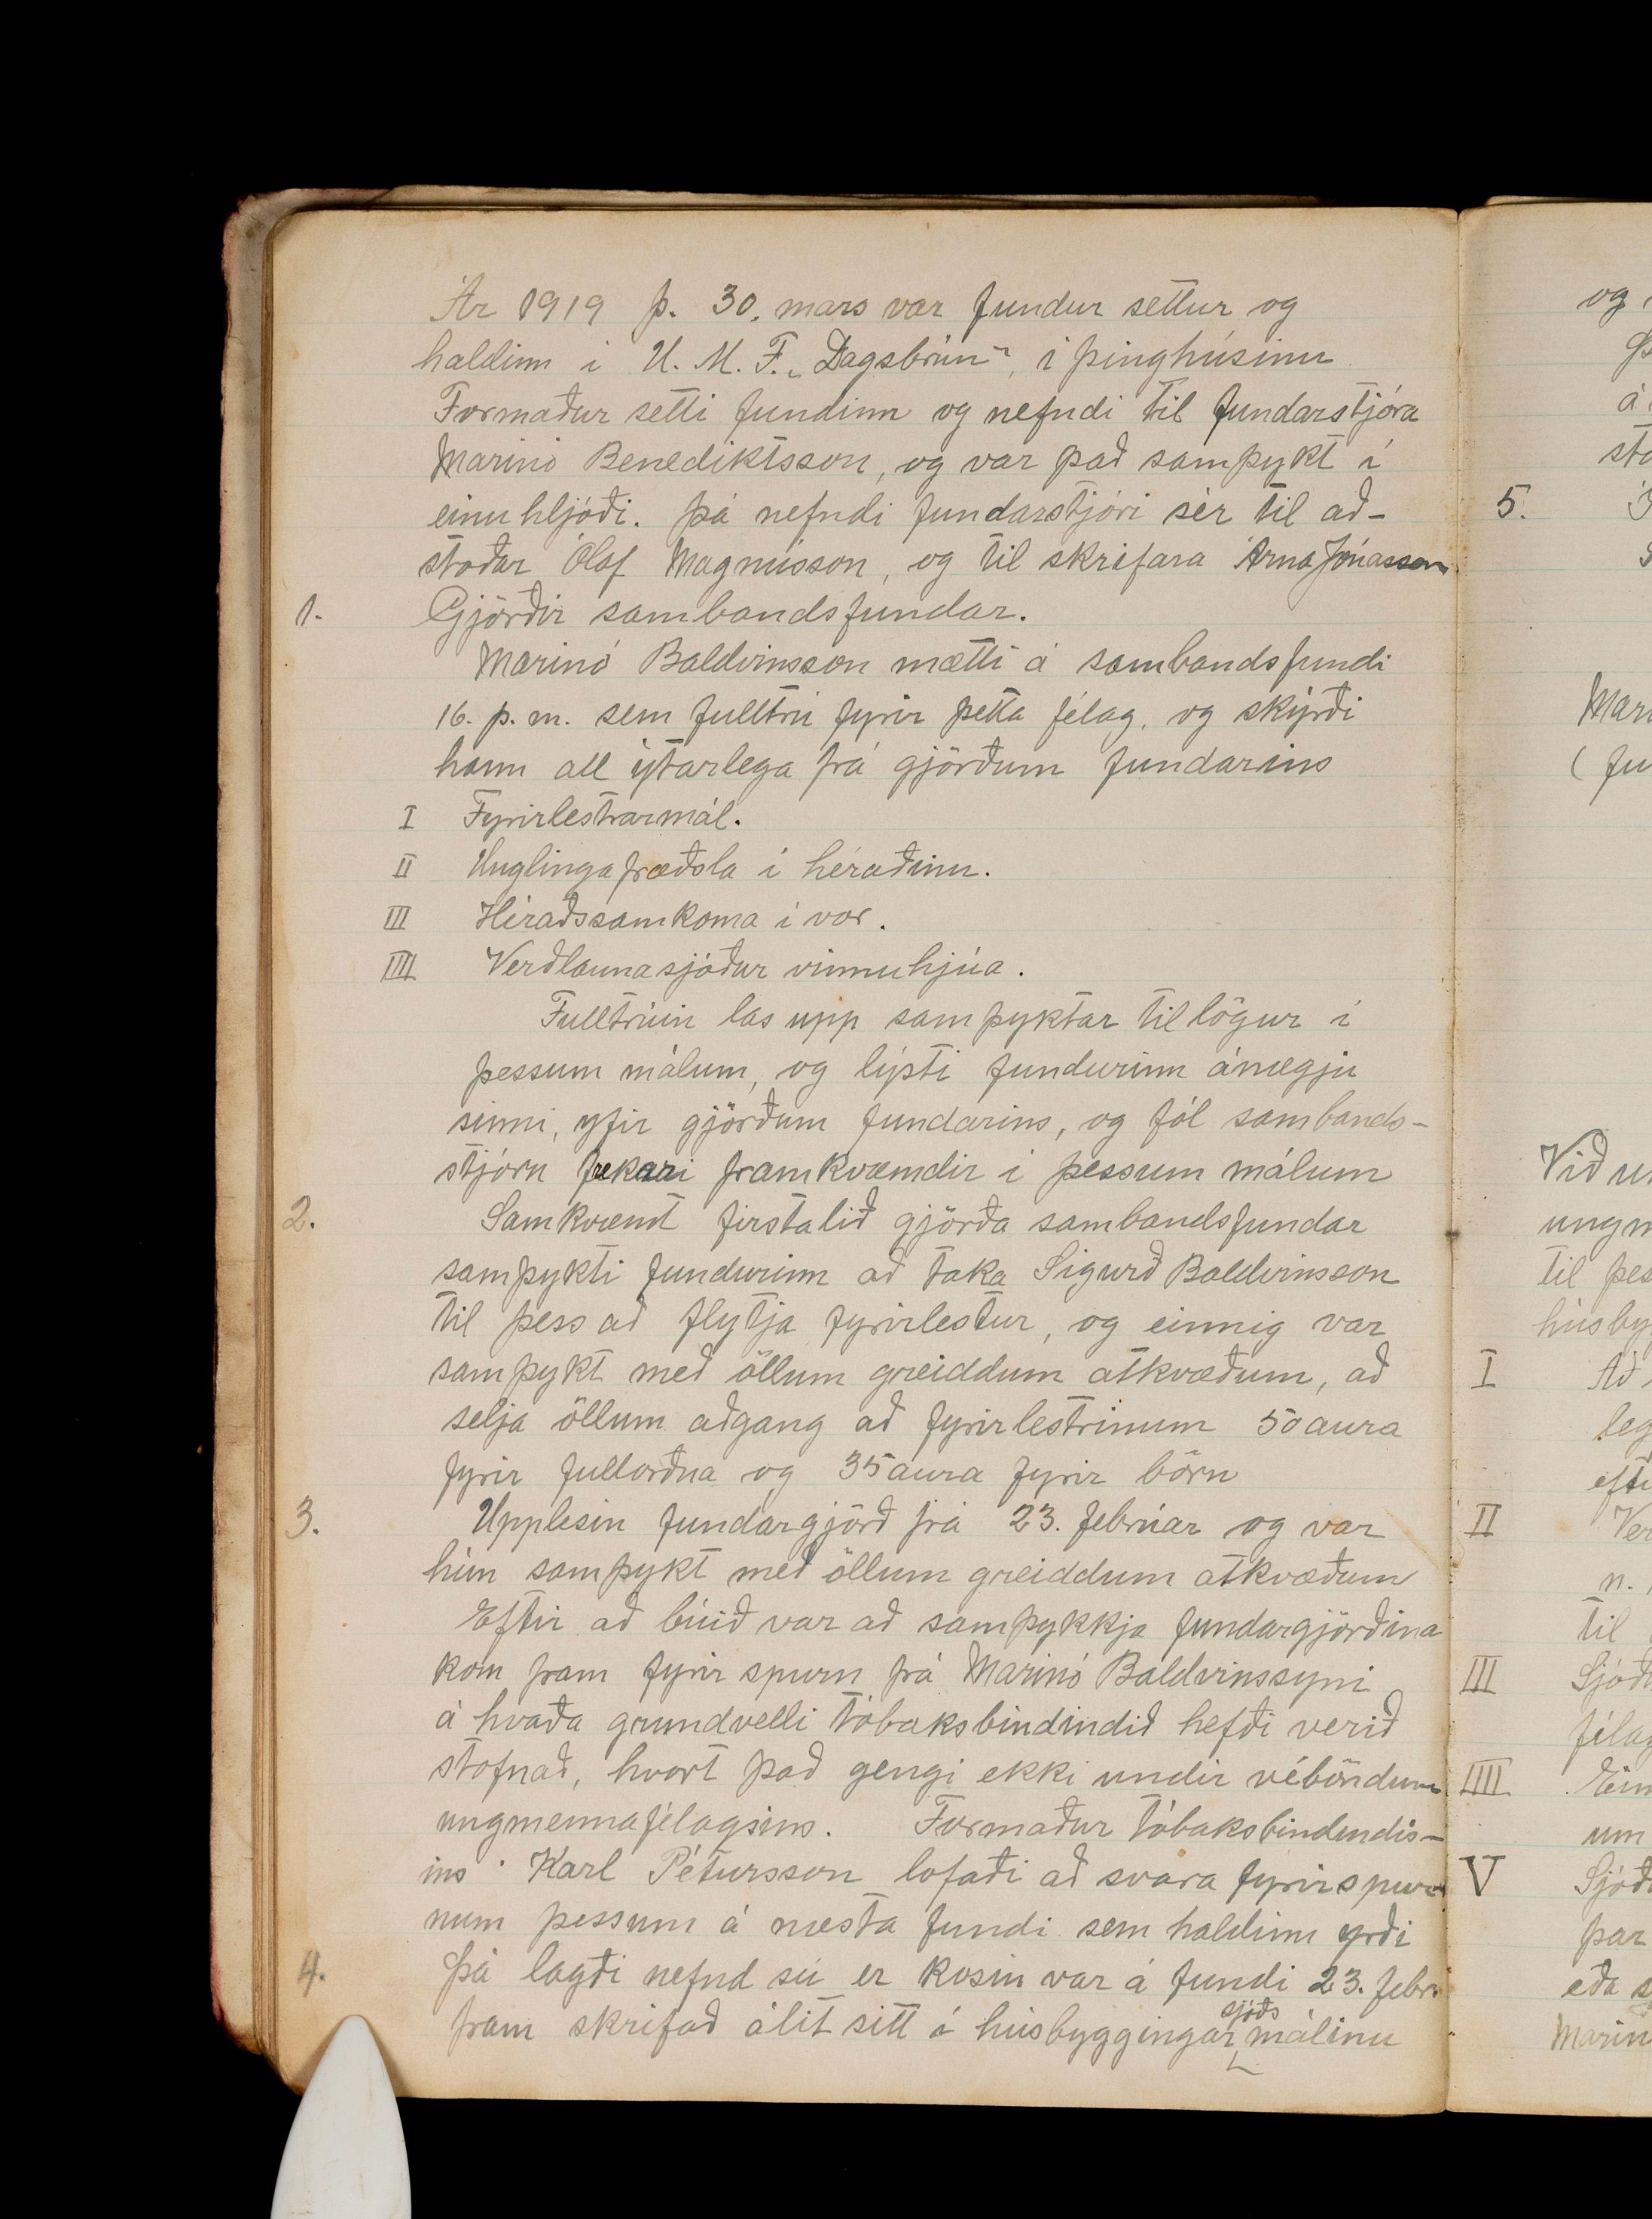 Ár 1919 þ. 30. mars var fundur settur og
haldinn í U. M. F. „Dagsbrún“, í þinghúsinu
Formaður setti fundinn og nefndi til fundarstjóra
Marinó Benediktsson, og var það samþykt í
einu hljóði. Þá nefndi fundarstjóri sér til að-
stoðar Ólaf Magnússon, og til skrifara Árna Jónasson
1. Gjörðir sambandsfundar.
Marinó Baldvinsson mætti á sambandsfundi
16. þ. m. sem fulltrú fyrir þetta félag, og skýrði
hann all ýtarlega frá gjörðum fundarins
I Fyrirlestrarmál.
II Unglingafræðsla í héraðinu.
III Héraðssamkoma í vor.
IIII Verðlaunasjóður vinnuhjúa.
Fulltrúin las upp samþyktar tillögur í
þessum málum, og lýsti fundurinn ánægju
sinni, yfir gjörðum fundarins, og fól sambands-
stjórn frekari framkvæmdir í þessum málum
2. Samkvæmt firstalið gjörða sambandsfundar
samþykti fundurinn að taka Sigurð Baldvinsson
til þess að flytja fyrirlestur, og einnig var
samþykt með öllum greiddum atkvæðum, að
selja öllum aðgang að fyrirlestrinum 50 aura
fyrir fullorðna og 35 aura fyrir börn
3. Upplesin fundargjörð frá 23. febrúar og var
hún samþykt með öllum greiddum atkvæðum
Eftir að búið var að samþykkja fundargjörðina
kom fram fyrirspurn frá Marinó Baldvinssyni
á hvaða grundvelli tóbaksbindindið hefði verið
stofnað, hvort það gengi ekki undir véböndum
ungmennafélagsins. Formaður tóbaksbindindis-
ins Karl Pétursson lofaði að svara fyrirspurn
num þessum á næsta fundi sem haldinn yrði
4. Þá lagði nefnd sú er kosin var á fundi 23. febr.
fram skrifað álit sitt á húsbyggingarsjóðsmálinu
og
á
5.
Mar
(fu
Við
ungm
til þes
húsby
I Að
leg
eft
II Ver
n.
til
III Sjóð
félag
IIII Ein
um
V Sjóð
þar
eða s
Marin